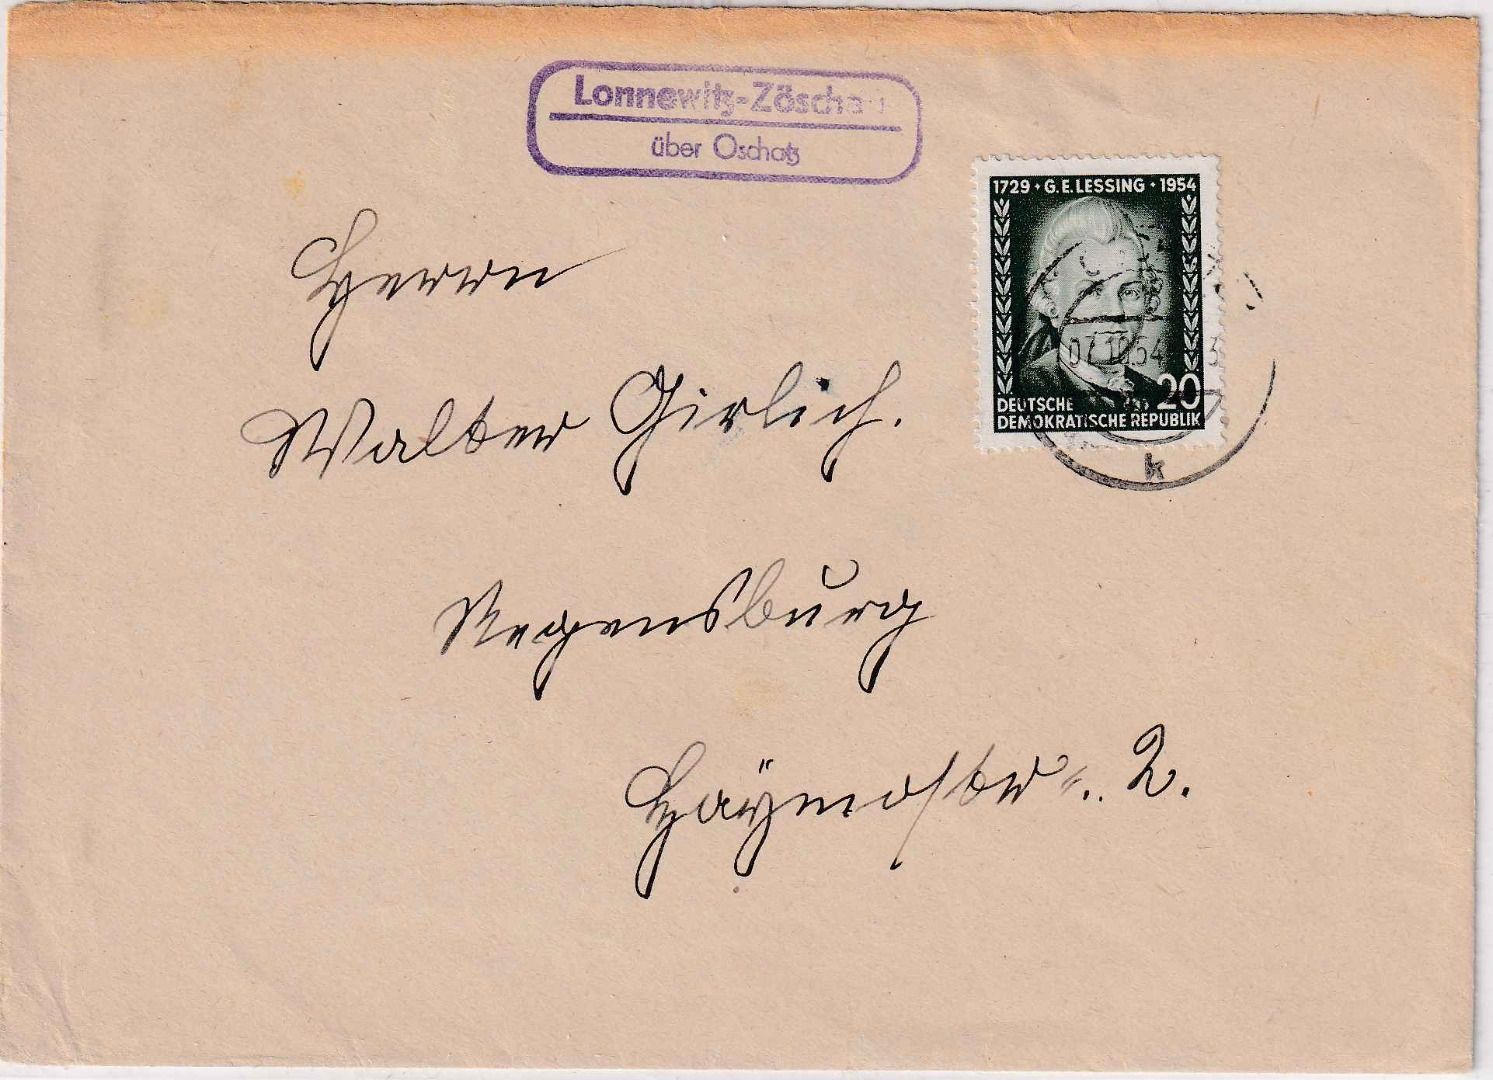 Lonnewitz-Zöschau
über Oschatz
1729 · G. E. LESSING · 1954
07.10.54
20
DEUTSCHE
DEMOKRATISCHE REPUBLIK
k
Herrn
Walter Girlich.
Regensburg
2.